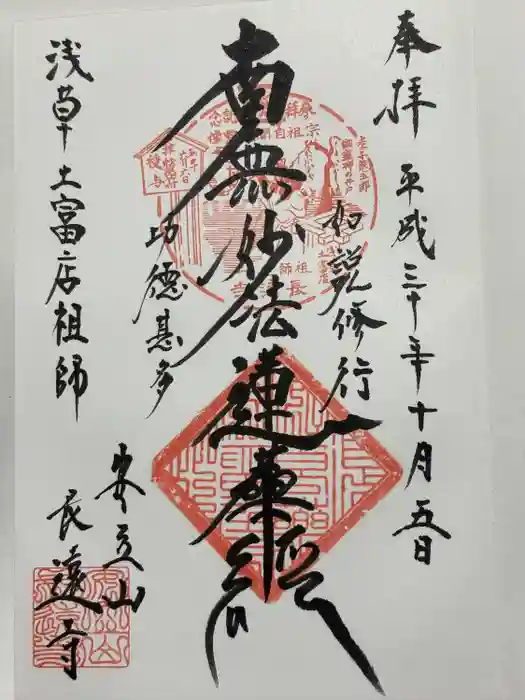 奉拝 平成三十年十月五日
如説修行
南無妙法蓮華経
功徳甚多
浅草土富店祖師
安立山
長遠寺